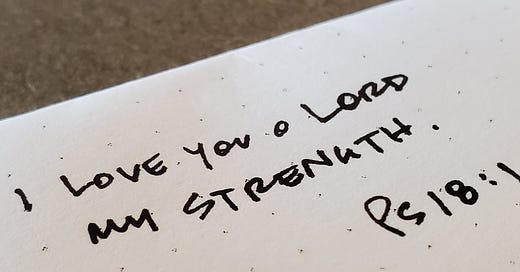 I LOVE YOU O LORD
MY STRENGTH.
PS 18:1